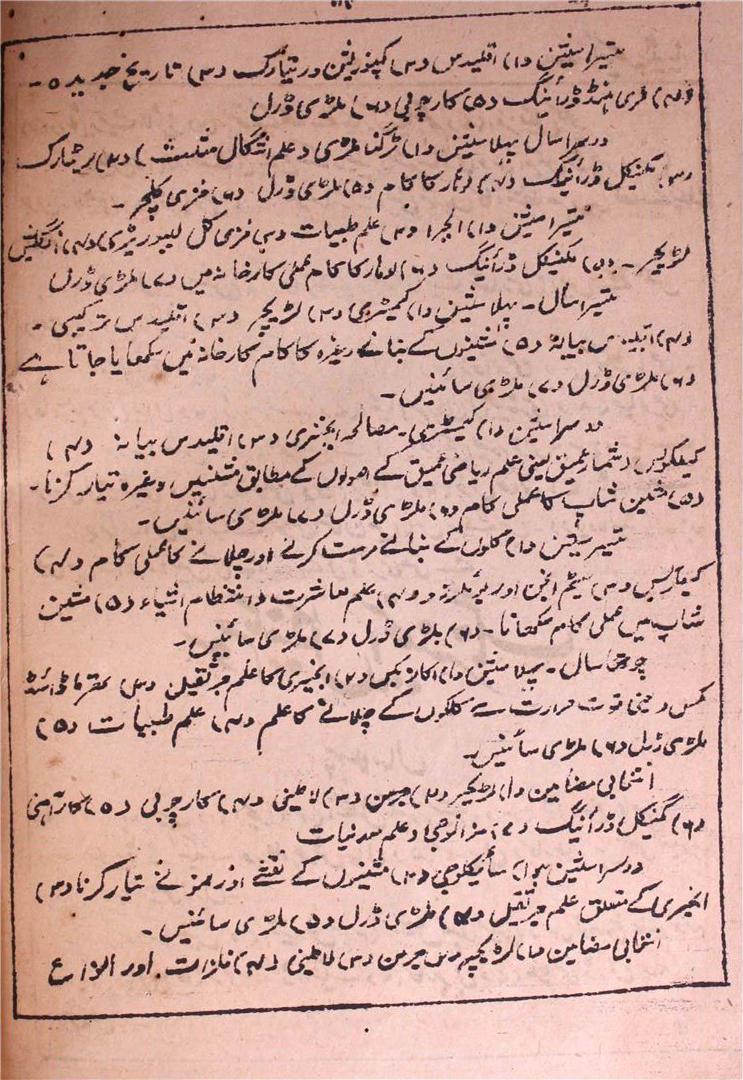 تیسرا سیشن (۱) اقلیدس (۲) کمپوزیشن و ریٹارک (۳) تاریخ جدید ۔
(۴) فری ہنڈ ڈرائینگ (۵) کارچوبی (۶) ملڑی ڈرل
دوسرا سال پہلا سیشن (۱) ٹرگنا مٹری (علم اشکال مثلث) (۲) ریٹارک
(۳) مکنیکل ڈرائینگ (۴) لوہار کا کام (۵) ملڑی ڈرل (۶) فزی کلچر ۔
تیسرا سیشن (۱) الجبرا (۲) علم طبیات (۳) فزی کل لیبوریٹری (۴) انگلش
لٹریچر ۔ (۵) مکنیکل ڈرائینگ (۶) لوہار کا کام عملی کارخانہ میں (۷) ملڑی ڈرل
تیسرا سال ۔ پہلا سیشن (۱) کمیسٹری (۲) لڑیچر (۳) اقلیدس ترکیبی ۔
(۴) اقلیدس بیانہ (۵) مشینوں کے بنانے وغیرہ کا کام کارخانہ میں سکھایا جاتا ہے
(۶) ملڑی ڈرل (۷) ملڑی سائنیس ۔
دوسرا سیشن (۱) کیمسٹری ۔ مصالحہ انجنئری (۲) اقلیدس بیانہ (۴)
کیلکولس (شمار عمیق) یعنی علم ریاضی عمیق کے اصولوں کے مطابق مشنیں وغیرہ تیار کرنا ۔
(۵) مشین شاپ کا عملی کام (۶) ملڑی ڈرل (۷) ملڑی سائنیس ۔
تیسرا سیشن (۱) کلوں کے بنانے درست کرنے اور چلانے کا عملی کام (۲)
(۳) سٹیم انجن اور بوئلرز (۴) علم معاشرت (انتظام اشیاء) (۵) مشین
شاپ میں عملی کام سکھانا ۔ (۶) ملڑی ڈرل (۷) ملڑی سائنیس ۔
چوتھا سال ۔ پہلا سیشن (۱) اکنامکس (۲) انجنیری کا علم جرثقیل (۳) تھرماڈائنا
مکس (یعنی قوت حرارت سے کلکوں کے چلانے کا علم (۴) علم طبیات (۵)
ملڑی ڈرل (۶) ملڑی سائنیس ۔
انتخابی مضامین (۱) لڑیچر (۲) جرمن (۳) لاطینی (۴) کارچوبی (۵) کار آہنی
(۶) مکنیکل ڈرائینگ (۷) منرالوجی (علم معدنیات
دوسرا سیشن (۱) سائیکلوجی (۲) مشینوں کے نقشے اور نمونے تیار کرنا (۳)
انجنیری کے متعلق علم جرثقیل (۴) ملڑی ڈرل (۵) ملڑی سائنیس ۔
انتخابی مضامین (۱) لڑیچر (۲) جرمن (۳) لاطینی (۴) فلزات اور